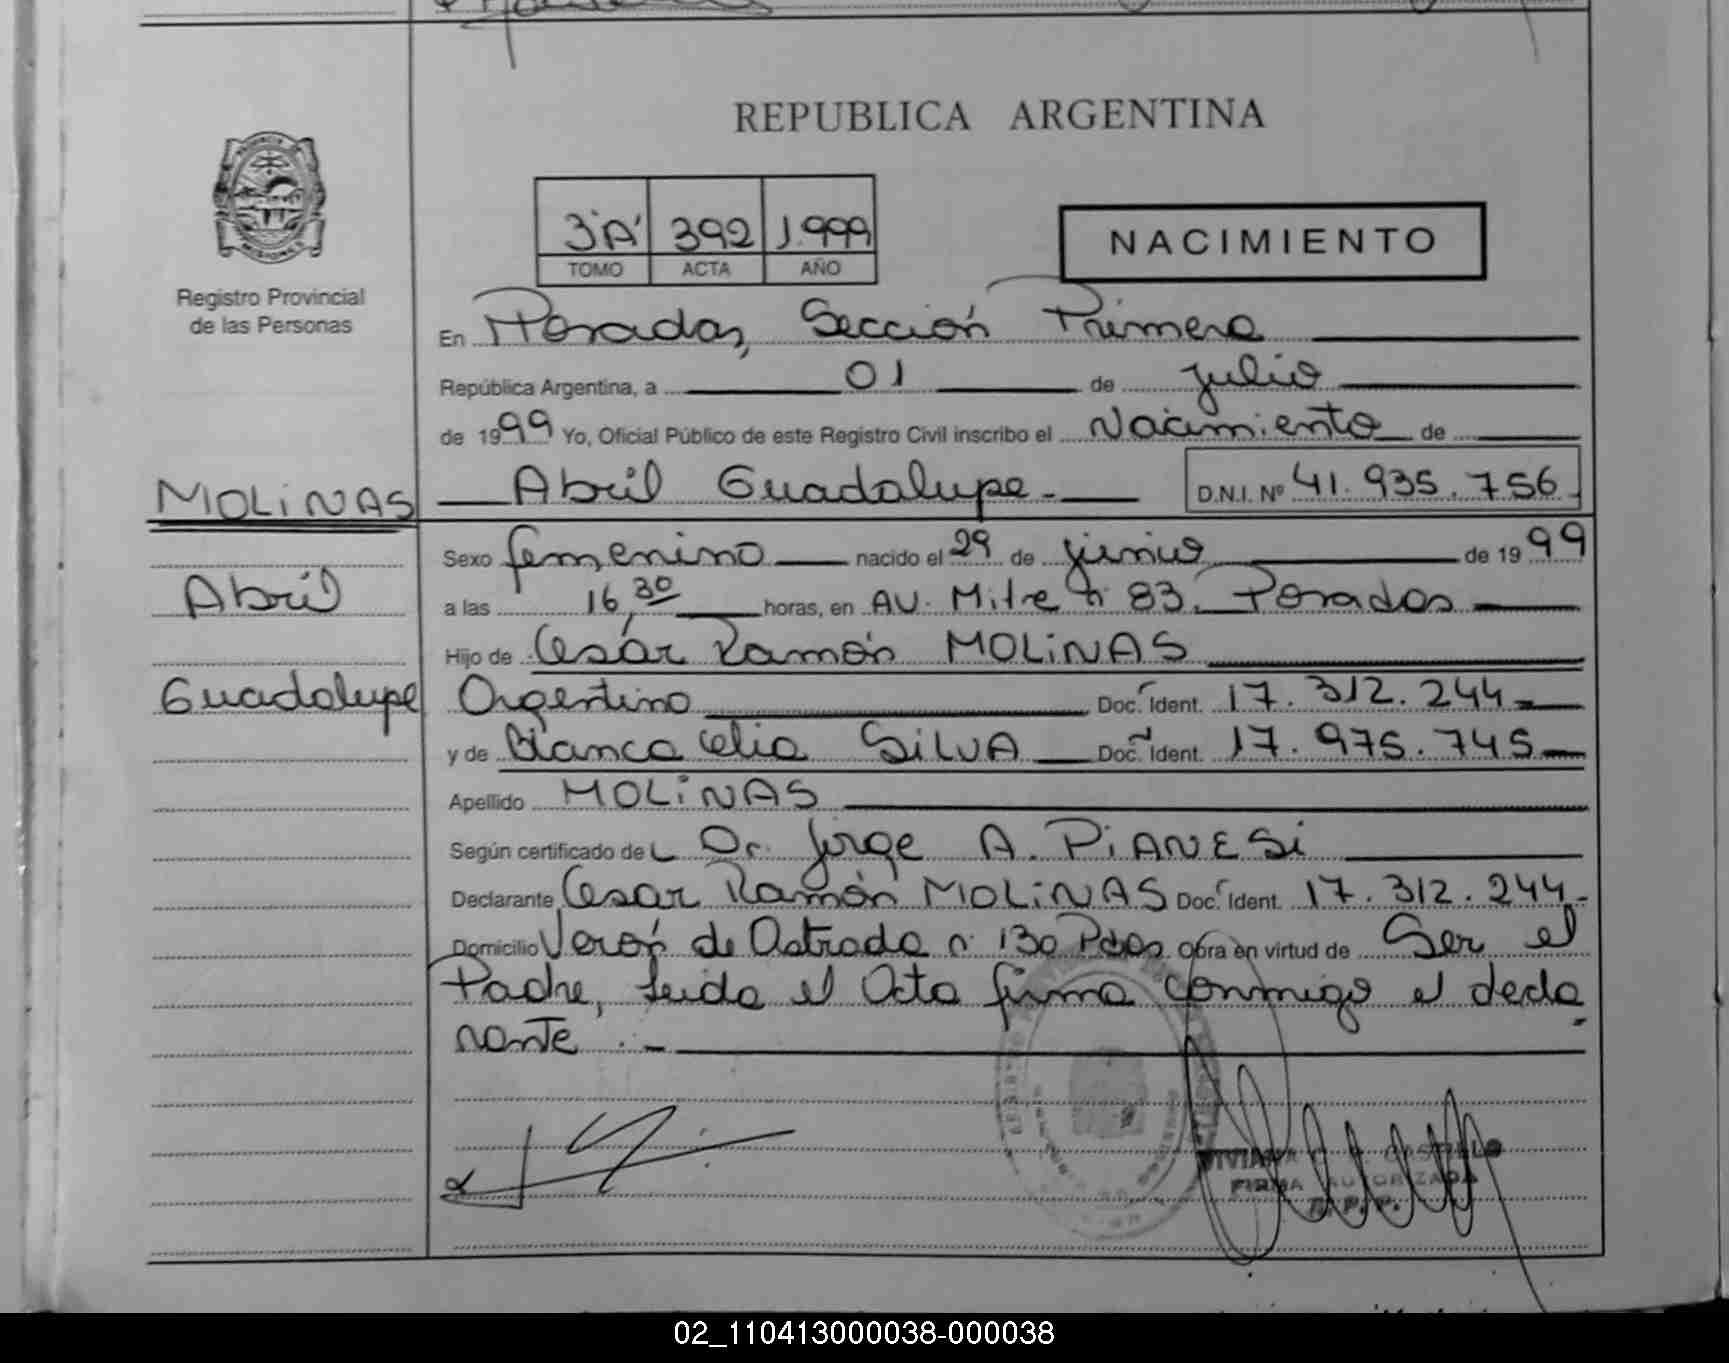 REPUBLICA ARGENTINA
3ºA' 392 1.999
TOMO ACTA AÑO
NACIMIENTO
Registro Provincial
de las Personas
En Posadas, Sección Primera
República Argentina, a 01 de julio
de 1999 Yo, Oficial Público de este Registro Civil inscribo el Nacimiento de
MOLiNAS Abril Guadalupe.- D.N.I. Nº 41.935.756
Sexo femenino nacido el 29 de junio de 1999
Abril
a las 16,30 horas, en AV. Mitre nº 83. Posadas
Hijo de Cesár Ramón MOLiNAS
Guadalupe
Argentino Doc. Ident. 17.312.244
y de Blanca Celia SiLVA Doc. Ident. 17.975.745
Apellido MOLiNAS
Según certificado del Dr. Jorge A. PiANESi
Declarante Cesár Ramón MOLiNAS Doc. Ident. 17.312.244.
Domicilio Verón de Astrada nº 130 Pdas. Obra en virtud de Ser el
Padre, Leida el Acta firma conmigo el decla
rante .-
CASTILLO
FIRMA AUTORIZADA
R.P.P.
02_110413000038-000038